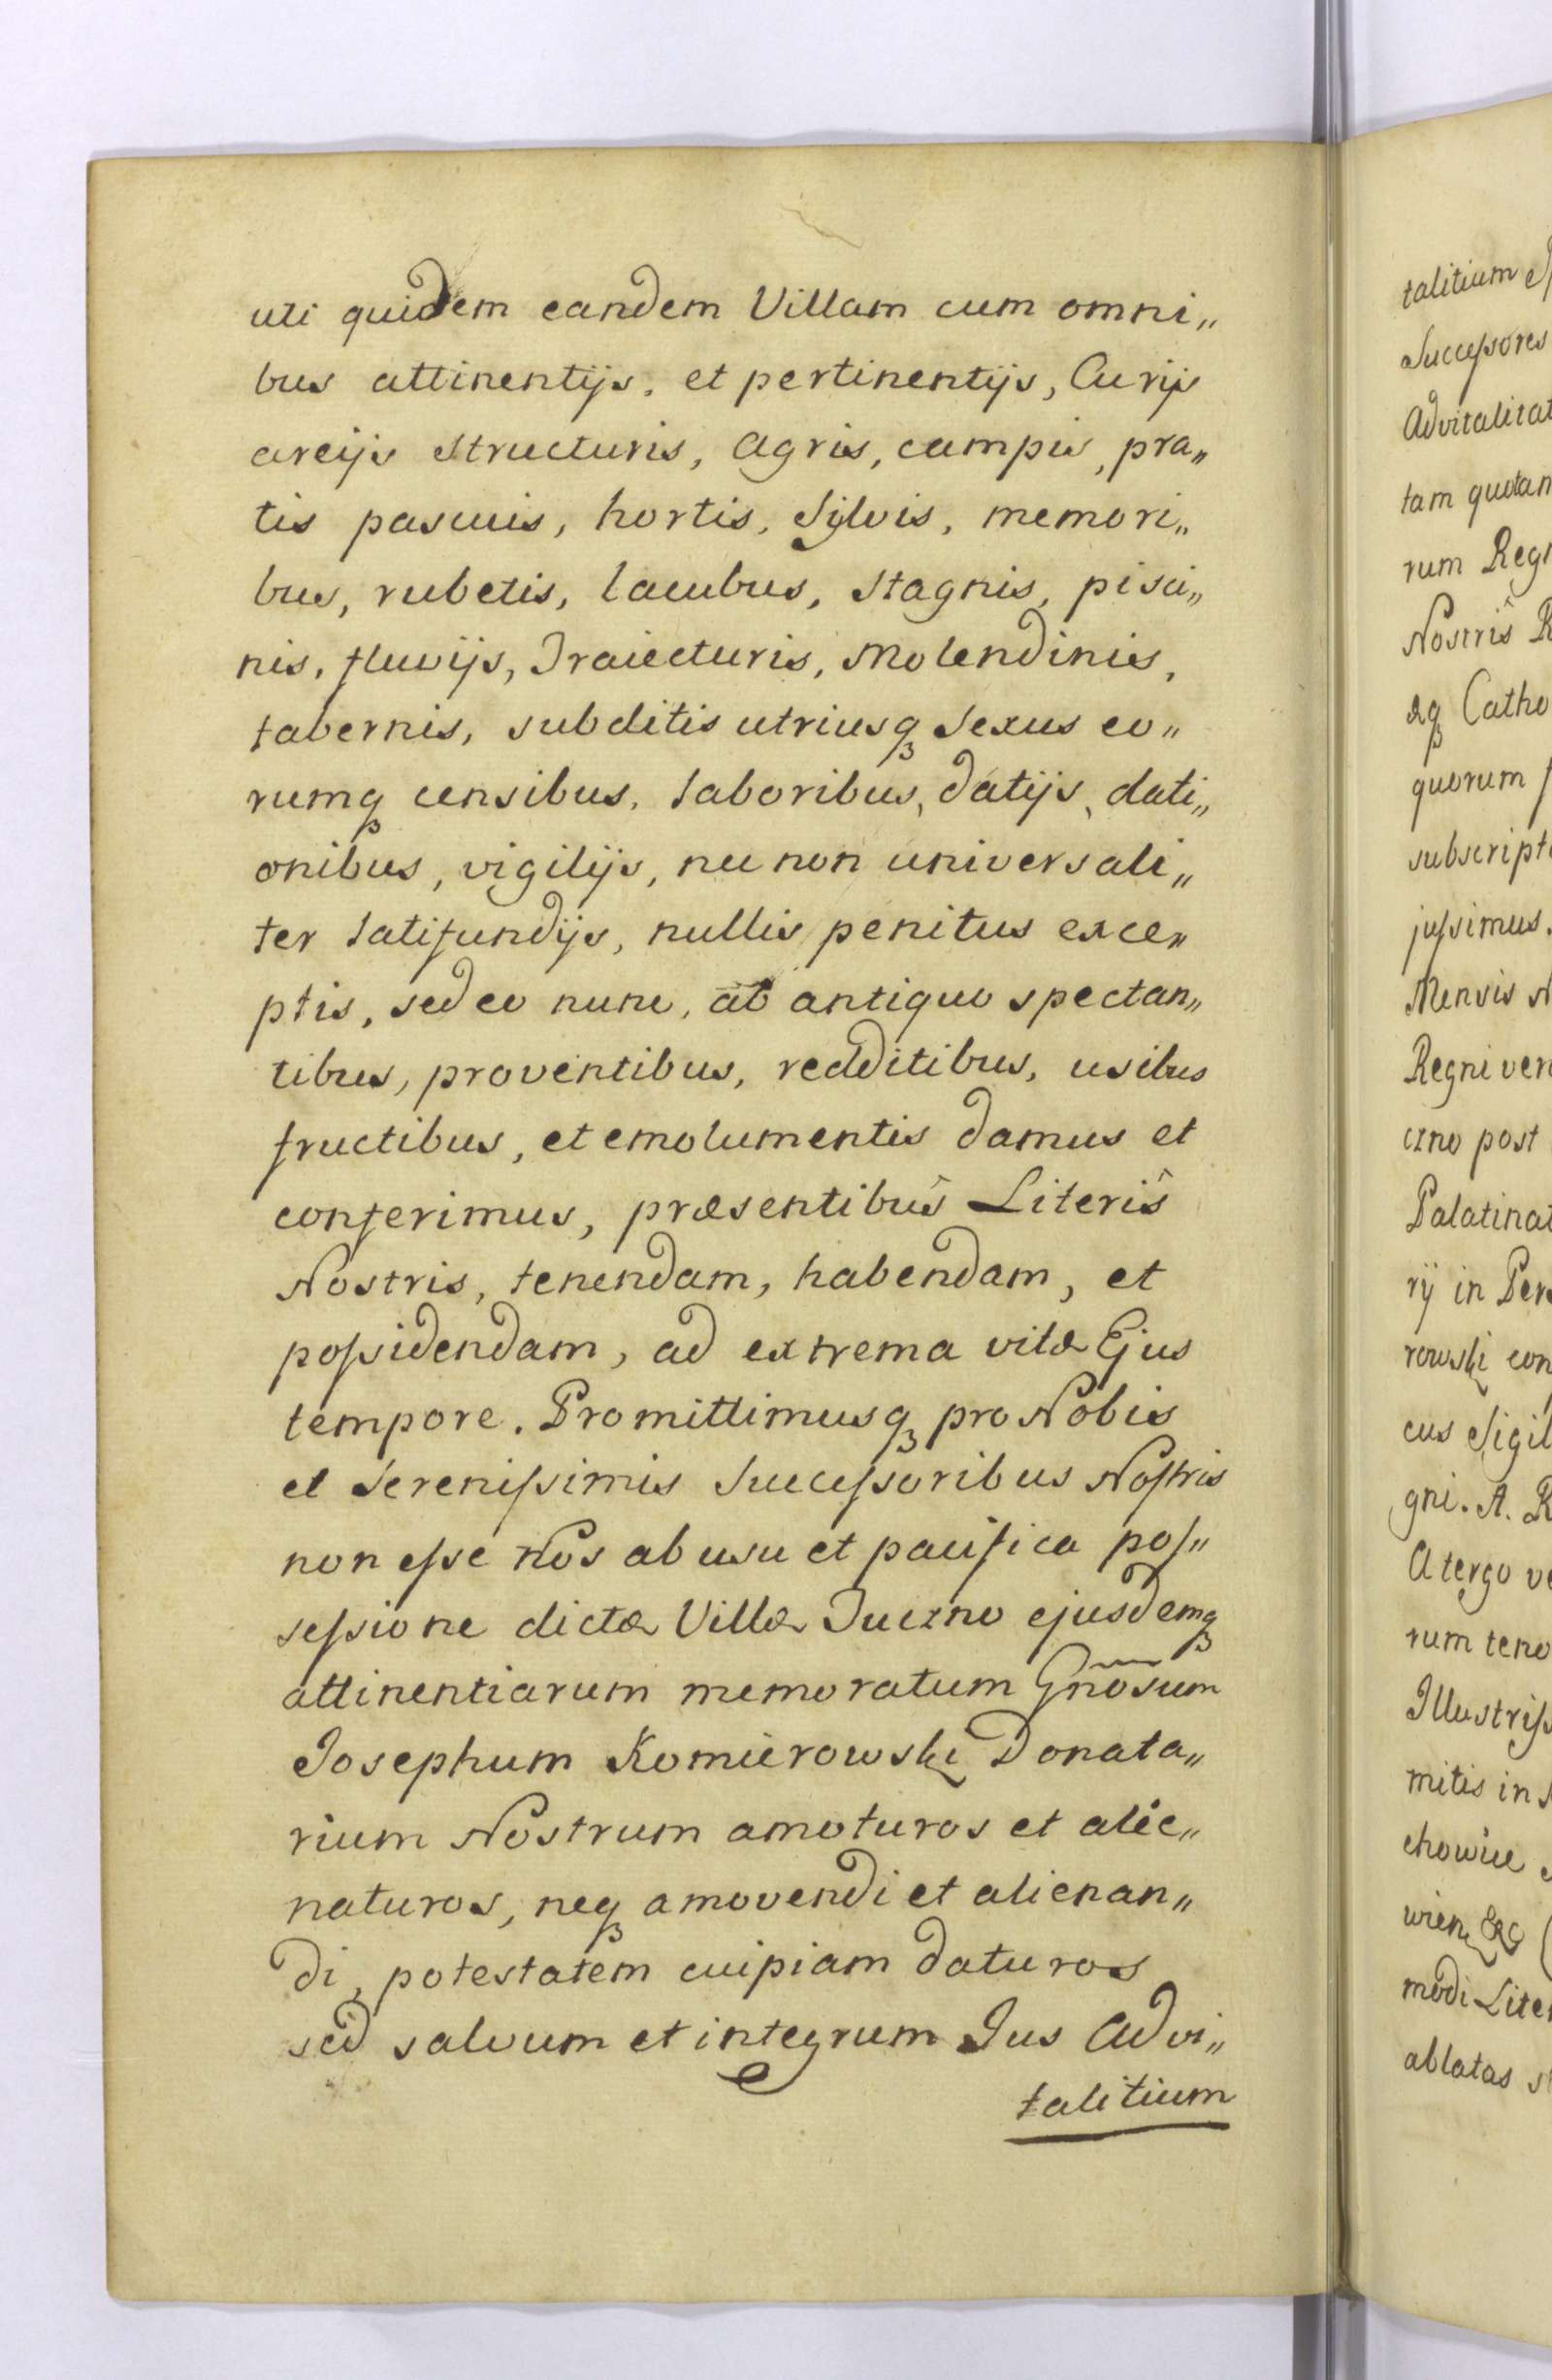 uti quidem eandem Villam cum omni„
bus attinentijs, et pertinentijs, Curijs
areijs structuris, Agris, campis, pra„
tis pascuis, hortis, Sylvis, memori„
bus, rubetis, lacubus, stagnis, pisci„
nis, fluvijs, Traiecturis, Molendinis,
tabernis, subditis utriusq3 Sexus eo„
rumq3 censibus, laboribus, datijs, dati„
onibus, vigilijs, nec non universali„
ter latifundijs, nullis penitus exce„
ptis, sed eo nunc, ab antiquo spectan„
tibus, proventibus, redditibus, usibus
fructibus, et emolumentis damus et
conferimus, præsentibus Literis
Nostris, tenendam, habendam, et
poſsidendam, ad extrema vitæ Ejus
tempore. Promittimusq3 pro Nobis
et Sereniſsimis Succeſsoribus Noſtris
non eſse Nos ab usu et pacifica poſ„
seſsione dictæ Villæ Tuczno ejusdemq3
attinentiarum memoratum Gn̄osum
Josephum Komierowski Donata„
rium Nostrum amoturos et alie„
naturos, neq3 amovendi et alienan„
di, potestatem cuipiam daturos
sed salvum et integrum Jus Advi„
talitium
talitium
Succeſsores
Advitalitat
tam quotan
rum Regn
Nostris R
eq3 Catho
quorum
subscript
juſsimus.
Mensis N
Regni vero
czno post
Palatinat
rij in Per
rowski con
cus Sigil
gni. A. R
A tergo ve
rum teno
Illustriſs
mitis in
chowice
wien &c
modi Liter
ablatas s